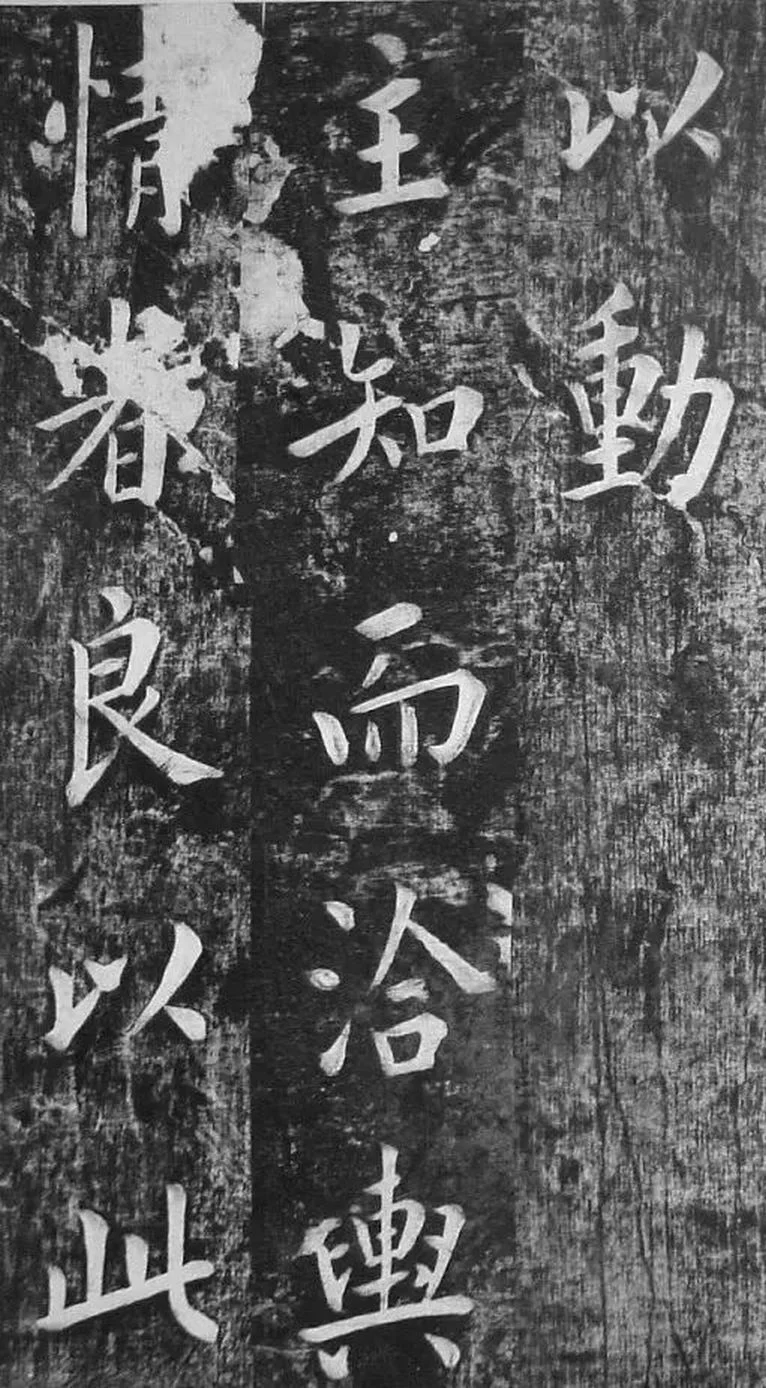 以動
主知而洽輿
情者良以此